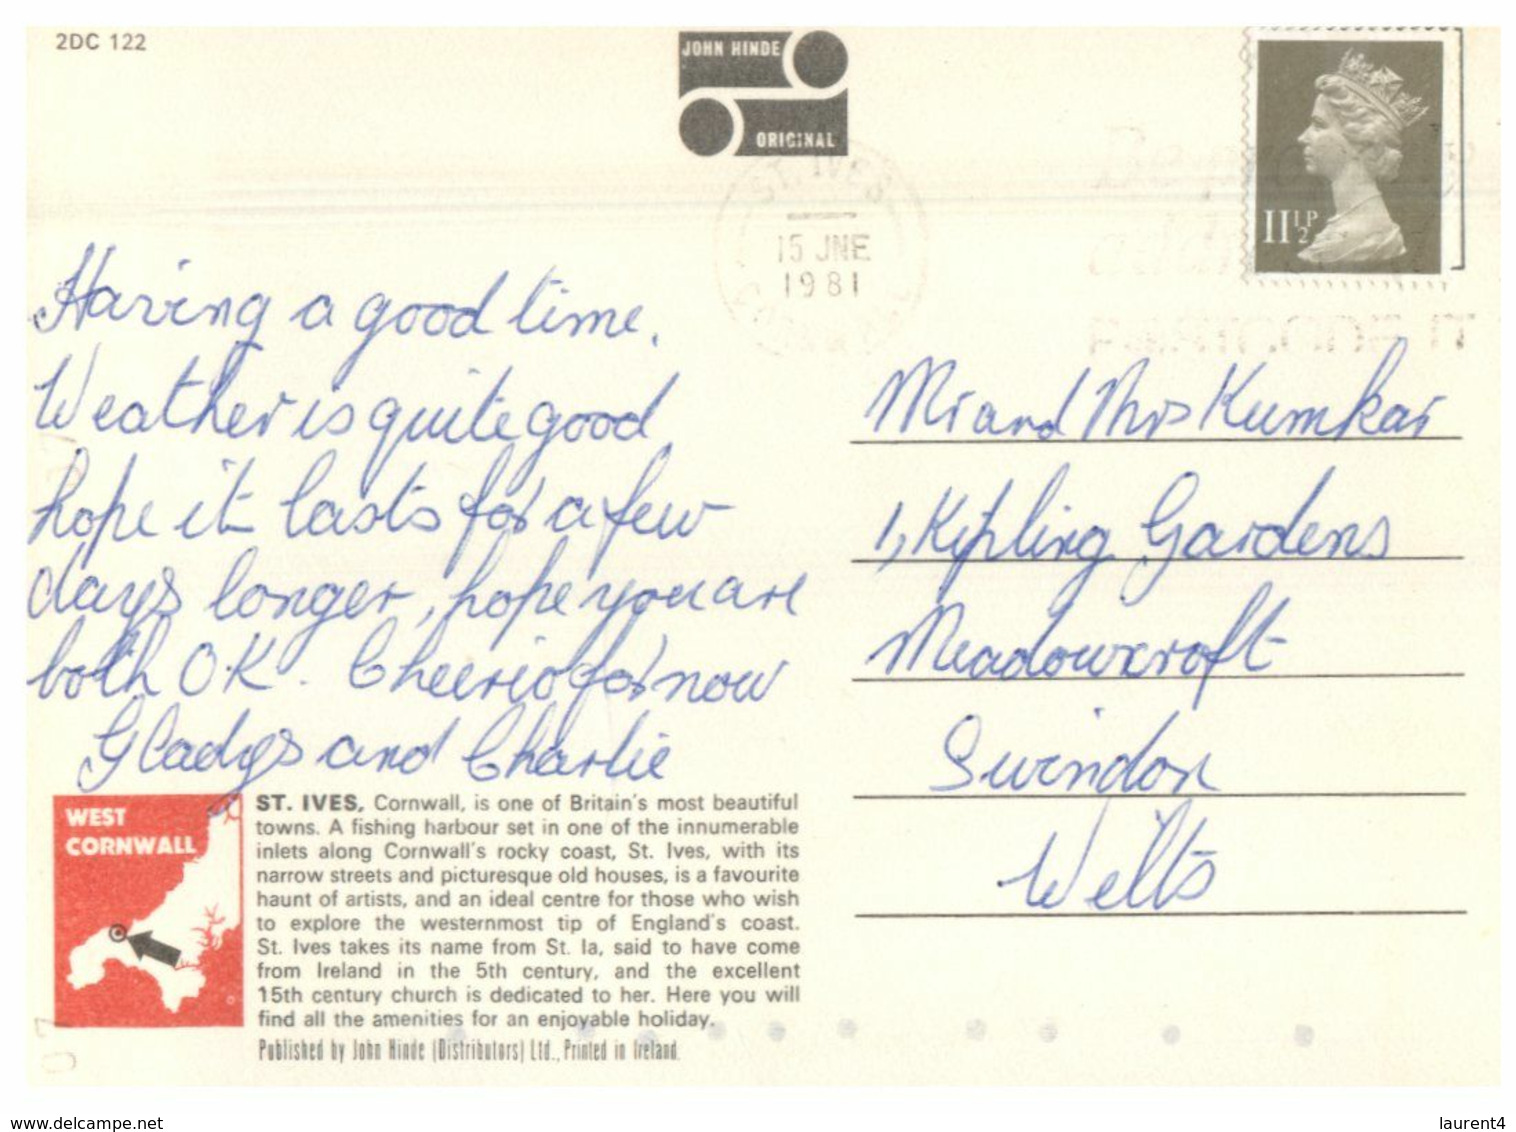 2DC 122
JOHN HINDE
ORIGINAL
11½P
ST. IVES
15 JNE
1981
Having a good time.
Weather is quite good
hope it lasts for a few
days longer, hope you are
both O.K. Cheerio for now
Gladys and Charlie
Mr and Mrs Kumkar
1, Kipling Gardens
Meadowcroft
Swindon
Wilts
WEST
CORNWALL
ST. IVES, Cornwall, is one of Britain's most beautiful
towns. A fishing harbour set in one of the innumerable
inlets along Cornwall's rocky coast, St. Ives, with its
narrow streets and picturesque old houses, is a favourite
haunt of artists, and an ideal centre for those who wish
to explore the westernmost tip of England's coast.
St. Ives takes its name from St. Ia, said to have come
from Ireland in the 5th century, and the excellent
15th century church is dedicated to her. Here you will
find all the amenities for an enjoyable holiday.
Published by John Hinde (Distributors) Ltd., Printed in Ireland.
www.delcampe.net
laurent4